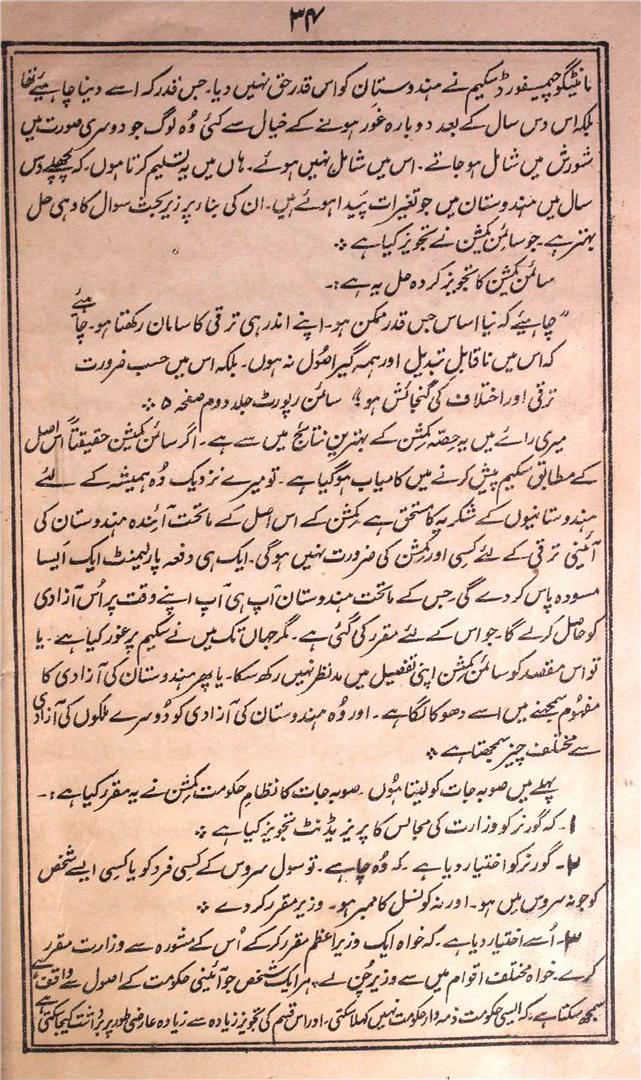 ۳۴
مانٹیگوچیمسفورڈ سکیم نے ہندوستان کو اس قدر حق نہیں دیا۔ جس قدر کہ اسے دینا چاہیئے تھا
بلکہ اس دس سال کے بعد دوبارہ غور ہونے کے خیال سے کئی وُہ لوگ جو دوسری صورت میں
شورش میں شامل ہو جاتے۔ اس میں شامل نہیں ہوئے۔ ہاں میں یہ تسلیم کرتا ہوں۔ کہ پچھلے دس
سال میں ہندوستان میں جو تغیرات پَیدا ہوئے ہیں۔ ان کی بناء پر زیر بحث سوال کا وہی حل
بہتر ہے۔ جو سائمن کمیشن نے تجویز کیا ہے ÷
سائمن کمیشن کا تجویز کردہ حل یہ ہے :۔
"چاہیئے کہ نیا اساس جس قدر ممکن ہو۔ اپنے اندر ہی ترقی کا سامان رکھتا ہو۔ چاہئے
کہ اس میں ناقابلِ تبدیل اور ہمہ گیر اصُول نہ ہوں۔ بلکہ اس میں حسب ضرورت
ترقی اور اختلاف کی گنجائش ہو"؛ سائمن رپورٹ جلد دوم صفحہ ۵ ÷
میری رائے میں یہ حِصّہ کمِشن کے بہترین نتائج میں سے ہے۔ اگر سائمن کمیشن حقیقتاً اس اصل
کے مطابق سکیم پیش کرنے میں کامیاب ہوگیا ہے۔ تو میرے نزدیک وُہ ہمیشہ کے لئے
ہندوستانیوں کے شکریہ کا مستحق ہے کمشن کے اس اصل کے ماتحت آئندہ ہندوستان کی
آئینی ترقی کے لئے کسی اور کمِشن کی ضرورت نہیں ہوگی۔ ایک ہی دفعہ پارلیمنٹ ایک ایسا
مسودہ پاس کر دے گی جس کے ماتحت ہندوستان آپ ہی آپ اپنے وقت پر اُس آزادی
کو حاصل کرلے گا۔ جو اس کے لئے مقرر کی گئی ہے۔ مگر جہاں تک میں نے سکیم پر غور کیا ہے۔ یا
تو اس مقصد کو سائمن کمِشن اپنی تفصیل میں مدنظر نہیں رکھ سکا۔ یا پھر ہندوستان کی آزادی کا
مفہُوم سمجھنے میں اسے دھوکا لگا ہے۔ اور وُہ ہندوستان کی آزادی کو دُوسرے ملکوں کی آزادی
سے مختلف چیز سمجھتا ہے ÷
پہلے میں صوبہ جات کو لیتا ہُوں۔ صوبہ جات کا نظامِ حکومت کمِشن نے یہ مقرر کیا ہے :۔
۱۔ کہ گورنر کو وزارت کی مجالس کا پریزیڈنٹ تجویز کیا ہے ÷
۲۔ گورنر کو اختیار دیا ہے۔ کہ وُہ چاہے۔ تو سول سروس کے کسِی فرد کو یا کسِی ایسے شخص
کو جو نہ سروس میں ہو۔ اور نہ کونسل کا ممبر ہو۔ وزیر مقرر کر دے ÷
۳۔ اُسے اختیار دیا ہے۔ کہ خواہ ایک وزیرِ اعظم مقرر کر کے اُس کے مشورہ سے وزارت مقرر
کرے۔ خواہ مختلف اقوام میں سے وزیر چُن لے، ہر ایک شخص جو آئینی حکومت کے اصول سے واقف ہے
سمجھ سکتا ہے۔ کہ ایسی حکومت ذمہ وار حکومت نہیں کہلا سکتی۔ اور اس قسم کی تجویز زیادہ سے زیادہ عارضی طور پر برداشت کیجا سکتی ہے